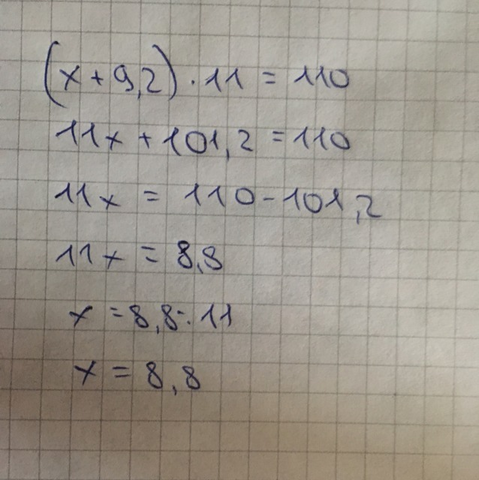 (x+9,2)·11=110
11x+101,2=110
11x=110-101,2
11x=8,8
x=8,8:11
x=8,8